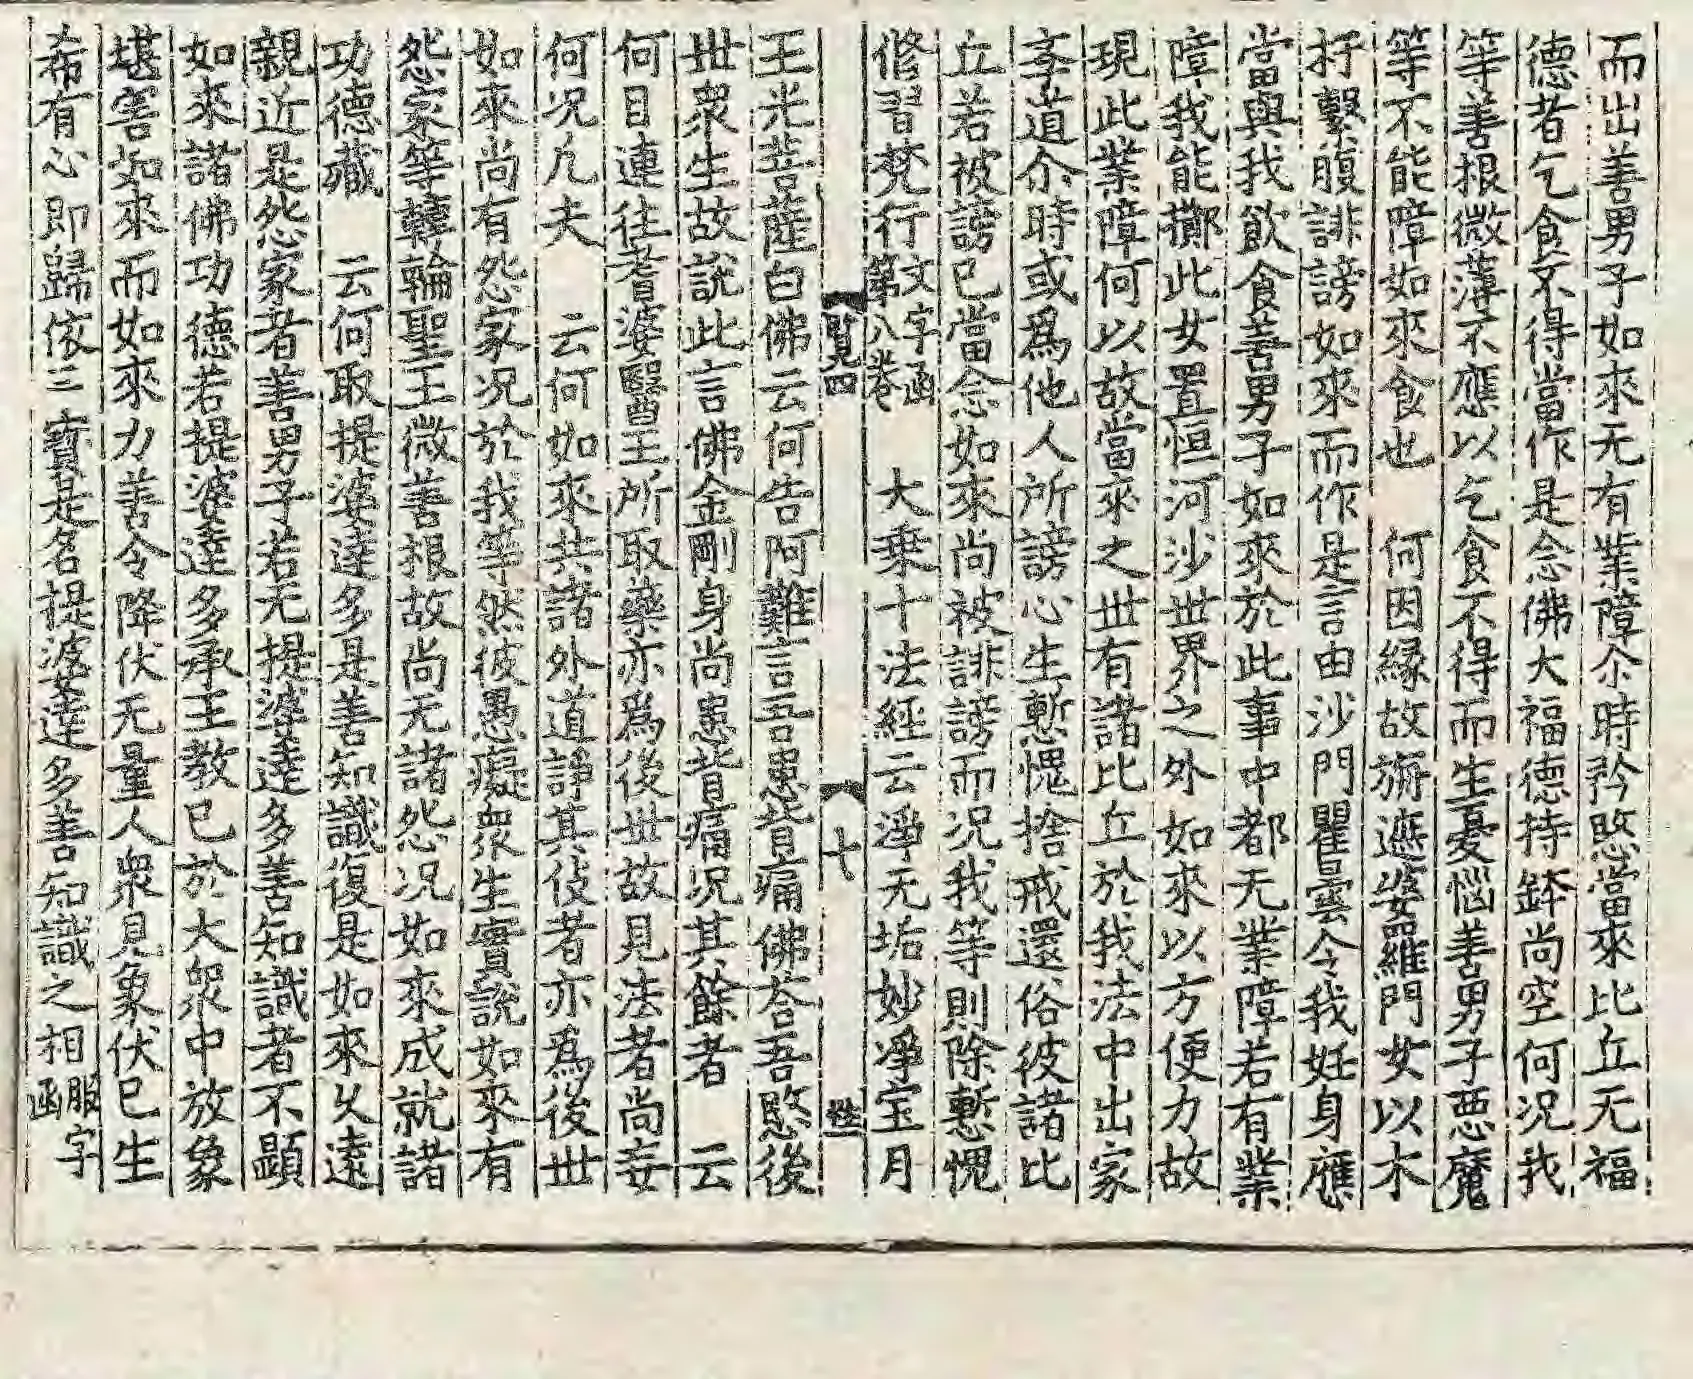 而出善男子如來无有業障尒時矜愍當來比丘无福
德者乞食不得當作是念佛大福德持鉢尚空何況我
等善根微薄不應以乞食不得而生憂惱善男子惡魔
等不能障如來食也　何因緣故旃遮婆羅門女以木
杅繫腹誹謗如來而作是言由沙門瞿曇令我妊身應
當與我飲食善男子如來於此事中都无業障若有業
障我能擲此女置恒河沙世界之外如來以方便力故
現此業障何以故當來之世有諸比丘於我法中出家
孝道尒時或爲他人所謗心生慙愧捨戒還俗彼諸比
丘若被謗已當念如來尚被誹謗而況我等則除慙愧
修習梵行 文字函第八卷　大乗十法經云淨无垢妙淨宝月
覧四　十
王光菩薩白佛云何告阿難言吾患背痛佛荅吾愍後
世衆生故說此言佛金剛身尚患背痛況其餘者　云
何目連往耆婆醫王所取藥亦爲後世故見法者尚妄
何況凡夫　云何如來共諸外道諍其伎者亦爲後世
如來尚有怨家況於我等然彼愚癡衆生實說如來有
怨家等轉輪聖王微善根故尚无諸怨況如來成就諸
功德藏　云何取提婆達多是善知識復是如來久遠
親近是怨家者善男子若无提婆達多善知識者不顯
如來諸佛功德若提婆達多承王教已於大衆中放象
堪害如來而如來力善令降伏无量人衆見象伏已生
希有心即歸依三寶是名提婆達多善知識之相 服字函